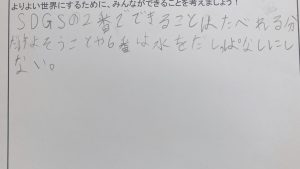 よりよい世界にするために、みんなができることを考えましょう！
SDGSの2番でできることはたべれる分
だけよそうことや6番は水をだしっぱなしにし
ない。